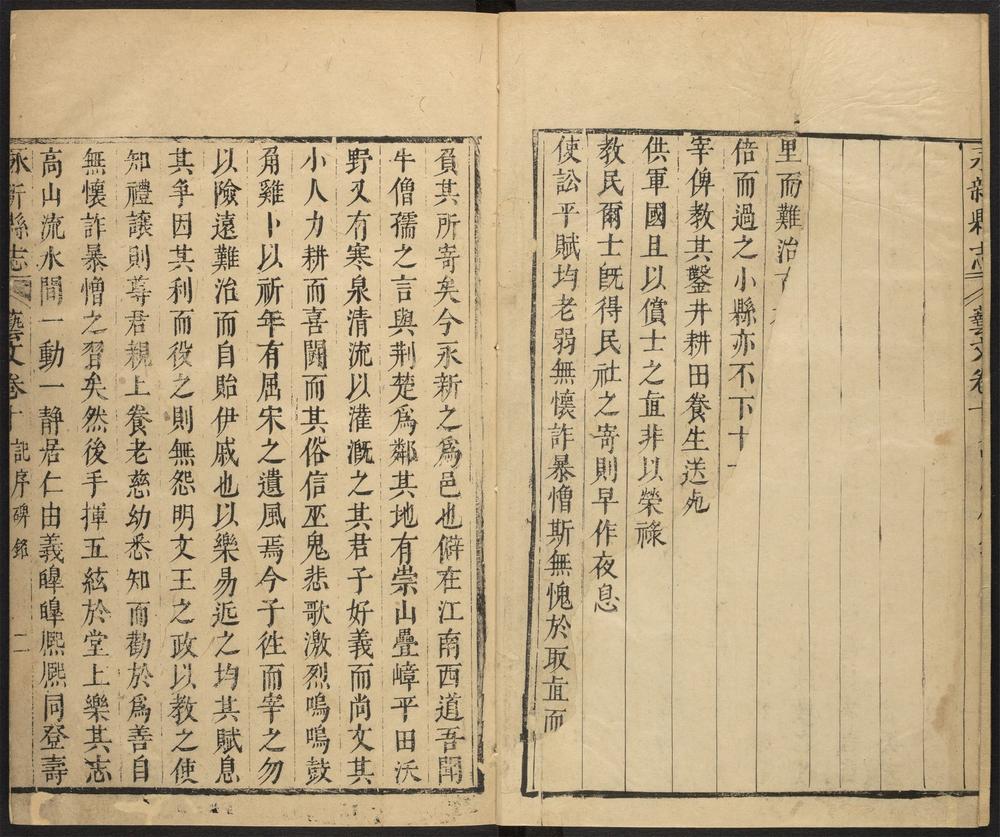 永新縣志 藝文卷十
里而難治
倍而過之小縣亦不下十
宰俾教其鑿井耕田養生送死
供軍國且以償士之直非以榮祿
教民爾士旣得民社之寄則早作夜息
使訟平賦均老弱無懷詐暴憎斯無愧於取直而
負其所寄矣今永新之爲邑也僻在江南西道吾聞
牛僧孺之言與荆楚爲鄰其地有崇山疊嶂平田沃
野又有寒泉清流以灌漑之其君子好義而尚文其
小人力耕而喜鬭而其俗信巫鬼悲歌激烈嗚嗚鼓
角雞卜以祈年有屈宋之遺風焉今子徃而宰之勿
以險遠難治而自貽伊戚也以樂易近之均其賦息
其爭因其利而役之則無怨明文王之政以教之使
知禮讓則尊君親上養老慈幼悉知而勸於爲善自
無懷詐暴憎之習矣然後手揮五絃於堂上樂其志
高山流水間一動一靜居仁由義皡皡熈熈同登壽
永新縣志 藝文卷十 記序碑銘 二